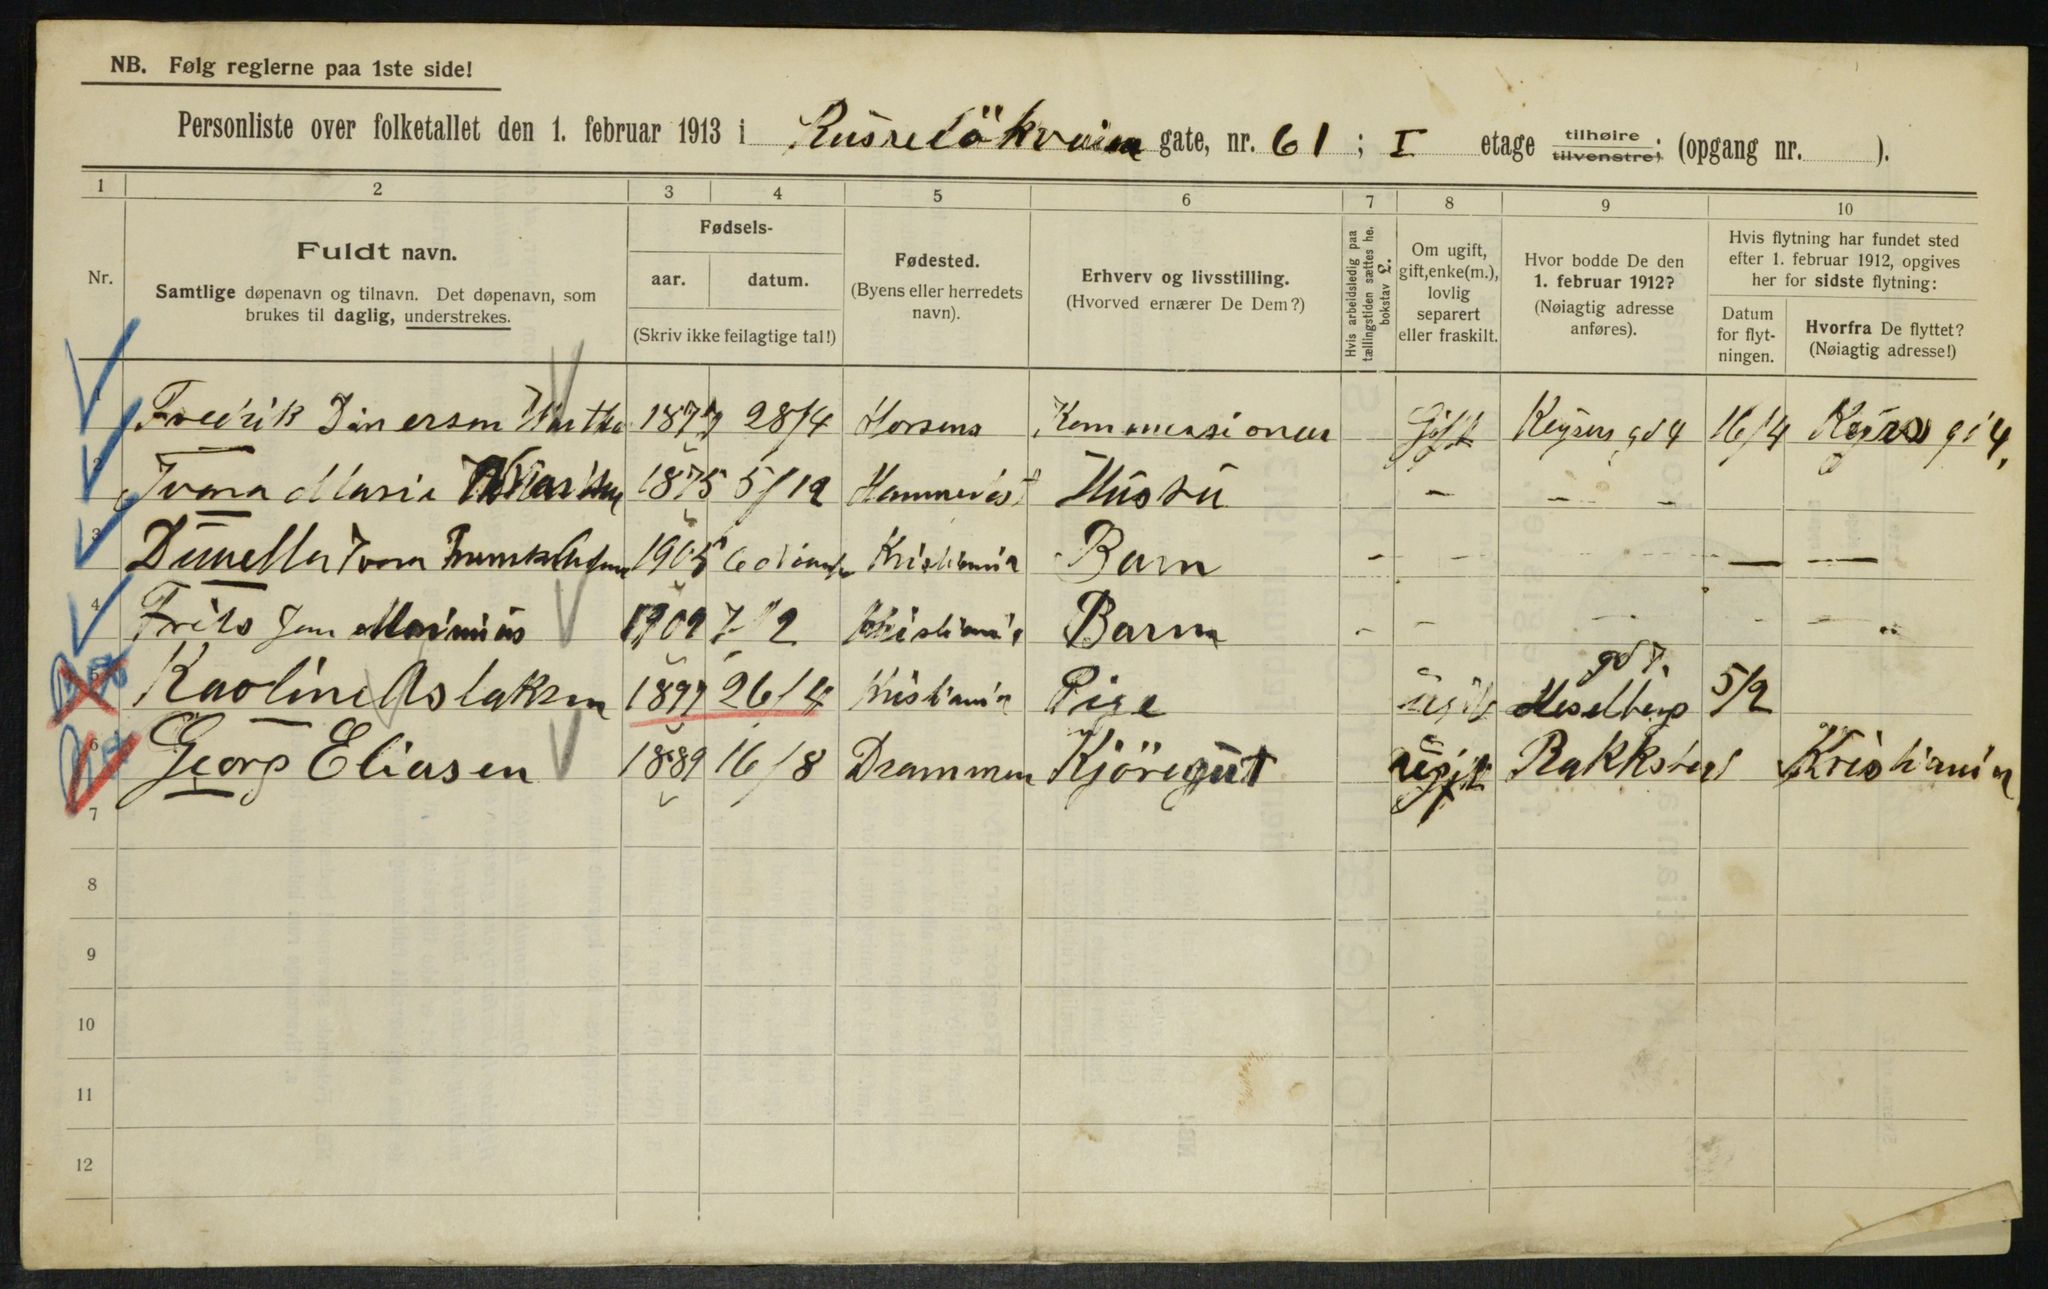 NB. Følg reglerne paa 1ste side!
Personliste over folketallet den 1. februar 1913 i Russelökveien gate, nr. 61; I etage tilhøire tilvenstre; (opgang nr. ).
1 2 3 4 5 6 7 8 9 10
Nr.
Fuldt navn.
Samtlige døpenavn og tilnavn. Det døpenavn, som
brukes til daglig, understrekes.
Fødsels-
aar. datum.
(Skriv ikke feilagtige tal!)
Fødested.
(Byens eller herredets
navn).
Erhverv og livsstilling.
(Hvorved ernærer De Dem?)
Hvis arbeidsledig paa
tællingstiden sættes he.
bokstav £.
Om ugift,
gift, enke(m.),
lovlig
separert
eller fraskilt.
Hvor bodde De den
1. februar 1912?
(Nøiagtig adresse
anføres).
Hvis flytning har fundet sted
efter 1. februar 1912, opgives
her for sidste flytning:
Datum
for flyt-
ningen.
Hvorfra De flyttet?
(Nøiagtig adresse!)
1 Fredrik 1877 28/4 Horsens Kommissioner Gift Keysers gd 4 16/4 Keysers gd 4,
2 Ivara Marie 1875 5/12 Hammerfest Hustru — — —
3 Ivara 1905 Kristiania Barn - - - — —
4 Frits Jan Marinius 1909 7/2 Kristiania Barn - - - - „
5 Karoline Aslaksen 1897 26/4 Kristiania Pige ugift Heselberg gd 7. 5/2
6 Georg Eliasen 1889 16/8 Drammen Kjöregut ugift Bakkstad Kristiania
7
8
9
10
11
12